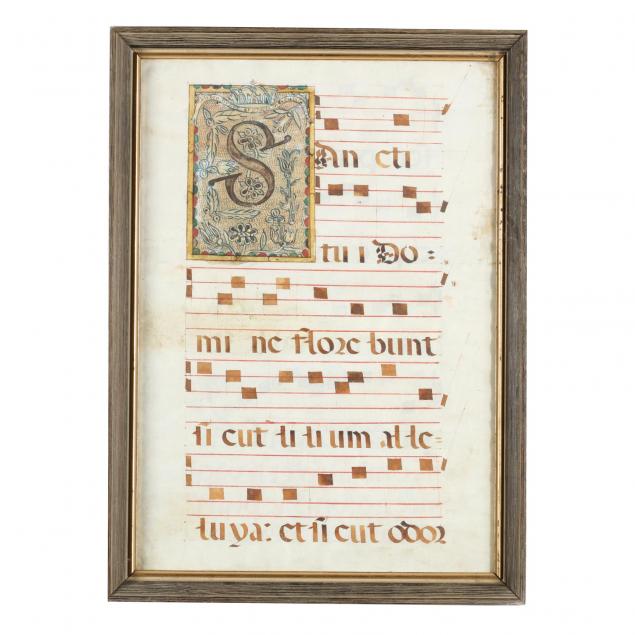 Sancti
tui Do=
mine florebunt
sicut lilium alle=
luya: et sicut odor